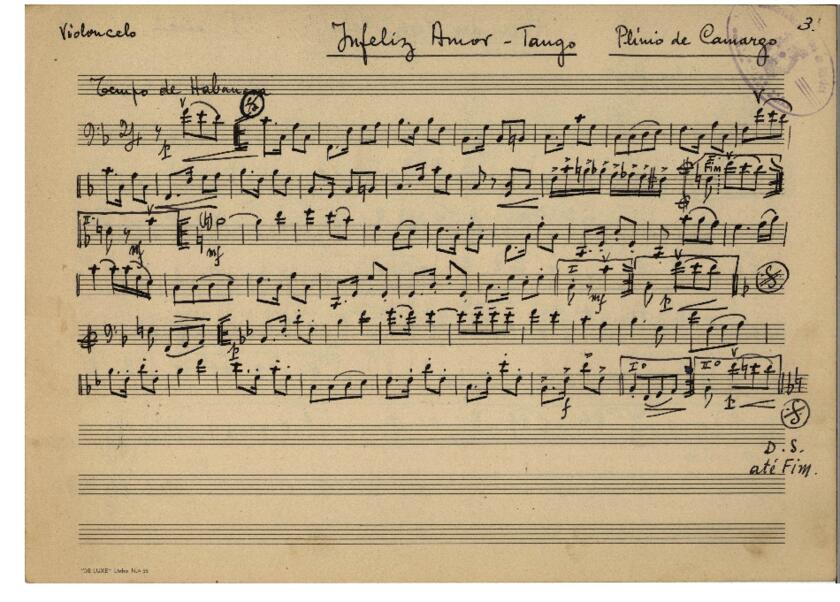 Violoncelo
Infeliz Amor - Tango
Plínio de Camargo
3.
Tempo de Habanera
2/4
p
Fim
I
mf
mf
I
mf
p
p
f
Iº
IIº
p
D. S.
até Fim.
"DE LUXE"